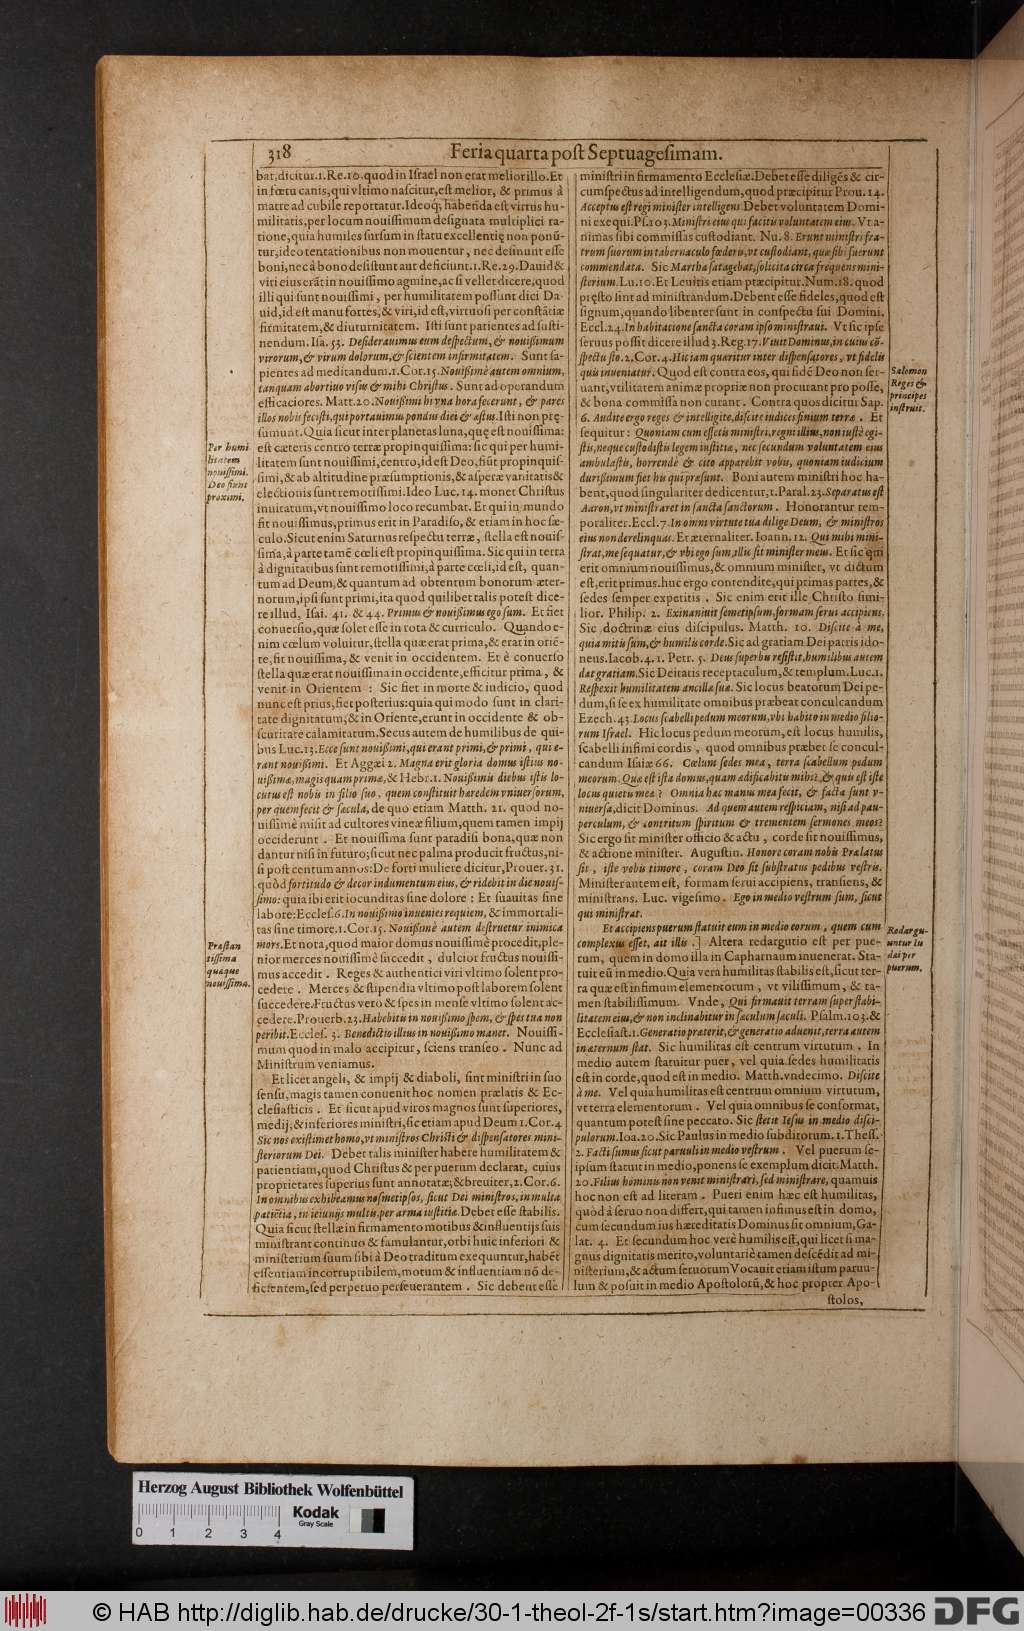 318 Feria quarta post Septuagesimam.
bat, dicitur. 1. Re. 10. quod in Israel non erat melior illo. Et
in fœtu canis, qui vltimo nascitur, est melior, & primus à
matre ad cubile reportatur. Ideoq; habenda est virtus hu-
militatis, per locum nouissimum designata multiplici ra-
tione, quia humiles sursum in statu excellentię non ponũ-
tur, ideo tentationibus non mouentur, nec desinunt esse
boni, nec à bono desistunt aut deficiunt. 1. Re. 29. Dauid &
viri eius erãt in nouissimo agmine, ac si vellet dicere, quod
illi qui sunt nouissimi, per humilitatem possunt dici Da-
uid, id est manu fortes, & viri, id est, virtuosi per constãtiæ
firmitatem, & diuturnitatem. Isti sunt patientes ad susti-
nendum. Isa. 53. Desiderauimus eum despectum, & nouissimum
virorum, & virum dolorum, & scientem infirmitatem. Sunt sa-
pientes ad meditandum. 1. Cor. 15. Nouissimè autem omnium,
tanquam abortiuo visus & mihi Christus. Sunt ad operandum
efficaciores. Matt. 20. Nouissimi hi vna hora fecerunt, & pares
illos nobis fecisti, qui portauimus pondus diei & æstus. Isti non prę-
sumunt. Quia sicut inter planetas luna, quę est nouissima:
est cæteris centro terræ propinquissima: sic qui per humi-
litatem sunt nouissimi, centro, id est Deo, fiũt propinquis-
simi, & ab altitudine præsumptionis, & asperæ vanitatis &
electionis sunt remotissimi. Ideo Luc. 14. monet Christus
inuitatum, vt nouissimo loco recumbat. Et qui in mundo
fit nouissimus, primus erit in Paradiso, & etiam in hoc sæ-
culo. Sicut enim Saturnus respectu terræ, stella est nouis-
sima, à parte tamẽ cœli est propinquissima. Sic qui in terra
à dignitatibus sunt remotissimi, à parte cœli, id est, quan-
tum ad Deum, & quantum ad obtentum bonorum æter-
norum, ipsi sunt primi, ita quod quilibet talis potest dice-
re illud, Isai. 41. & 44. Primus & nouissimus ego sum. Et fiet
conuersio, quæ solet esse in rota & curriculo. Quando e-
nim cœlum voluitur, stella quæ erat prima, & erat in oriẽ-
te, fit nouissima, & venit in occidentem. Et è conuerso
stella quæ erat nouissima in occidente, efficitur prima, &
venit in Orientem : Sic fiet in morte & iudicio, quod
nunc est prius, fiet posterius: quia qui modo sunt in clari-
tate dignitatum, & in Oriente, erunt in occidente & ob-
scuritate calamitatum. Secus autem de humilibus de qui-
bus Luc. 13. Ecce sunt nouissimi, qui erant primi, & primi, qui e-
rant nouissimi. Et Aggæi 2. Magna erit gloria domus istius no-
uissimæ, magis quam primæ, & Hebr. 1. Nouissimis diebus istis lo-
cutus est nobis in filio suo, quem constituit haredem vniuersorum,
per quem fecit & sæcula, de quo etiam Matth. 21. quod no-
uissimè misit ad cultores vineæ filium, quem tamen impij
occiderunt. Et nouissima sunt paradisi bona, quæ non
dantur nisi in futuro; sicut nec palma producit fructus, ni-
si post centum annos: De forti muliere dicitur, Prouer. 31.
quòd fortitudo & decor indumentum eius, & ridebit in die nouis-
simo: quia ibi erit iocunditas sine dolore : Et suauitas sine
labore: Eccles. 6. In nouissimo inuenies requiem, & immortali-
tas sine timore. 1. Cor. 15. Nouissimè autem destruetur inimica
mors. Et nota, quod maior domus nouissimè procedit, ple-
nior merces nouissimè succedit, dulcior fructus nouissi-
mus accedit. Reges & authentici viri vltimo solent pro-
cedere. Merces & stipendia vltimo post laborem solent
succedere. Fructus verò & spes in mense vltimo solent ac-
cedere. Prouerb. 23. Habebitis in nouissimo spem, & spes tua non
peribit. Eccles. 3. Benedictio illius in nouissimo manet. Nouissi-
mum quod in malo accipitur, sciens transeo. Nunc ad
Ministrum veniamus.
Et licet angeli, & impij & diaboli, sint ministri in suo
sensu, magis tamen conuenit hoc nomen prælatis & Ec-
clesiasticis. Et sicut apud viros magnos sunt superiores,
medij, & inferiores ministri, sic etiam apud Deum 1. Cor. 4
Sic nos existimet homo, vt ministros Christi & dispensatores mini-
steriorum Dei. Debet talis minister habere humilitatem &
patientiam, quod Christus & per puerum declarat, cuius
proprietates superius sunt annotatæ, & breuiter, 2. Cor. 6.
In omnibus exhibeamus nosmetipsos, sicut Dei ministros, in multa
patiẽtia, in ieiunijs multis, per arma iustitiæ. Debet esse stabilis.
Quia sicut stellæ in firmamento motibus & influentijs suis
ministrant continuo & famulantur, orbi huic inferiori &
ministerium suum sibi à Deo traditum exequuntur, habẽt
essentiam incorruptibilem, motum & influentiam nõ de-
ficientem, sed perpetuo perseuerantem. Sic debent esse
Per humi
litatem
nouissimi.
Deo fiunt
proximi.
Præstan
tissima
quæque
nouissima.
ministri in firmamento Ecclesiæ. Debet esse diligẽs & cir-
cumspectus ad intelligendum, quod præcipitur Prou. 14.
Acceptus est regi minister intelligens Debet voluntatem Domi-
ni exequi. Ps. 103. Ministri eius qui facitis voluntatem eius. Vt a-
nimas sibi commissas custodiant. Nu. 8. Erunt ministri fra-
trum suorum in tabernaculo fœderis, vt custodiant, quæ sibi fuerunt
commendata. Sic Martha satagebat, solicita circa frequens mini-
sterium. Lu. 10. Et Leuitis etiam præcipitur. Num. 18. quod
pręsto sint ad ministrandum. Debent esse fideles, quod est
signum, quando libenter sunt in conspectu sui Domini,
Eccl. 24. In habitatione sancta coram ipso ministraui. Vt sic ipse
seruus possit dicere illud 3. Reg. 17. Viuit Dominus, in cuius cõ-
spectu sto. 2. Cor. 4. Hic iam quæritur inter dispensatores, vt fidelis
quis inueniatur. Quod est contra eos, qui fidẽ Deo non ser-
uant, vtilitatem animæ propriæ non procurant pro posse,
& bona commissa non curant. Contra quos dicitur Sap.
6. Audite ergo reges & intelligite, discite iudices finium terræ. Et
sequitur : Quoniam cum essetis ministri, regni illius, non iustè egi-
stis, neque custodistis legem iustitiæ, nec secundum voluntatem eius
ambulastis, horrendè & cito apparebit vobis, quoniam iudicium
durissimum fiet his qui præsunt. Boni autem ministri hoc ha-
bent, quod singulariter dedicentur, 1. Paral. 23. Separatus est
Aaron, vt ministraret in sancta sanctorum. Honorantur tem-
poraliter. Eccl. 7. In omni virtute tua dilige Deum, & ministros
eius non derelinquas. Et æternaliter. Ioann. 12. Qui mihi mini-
strat, me sequatur, & vbi ego sum, illic sit minister meus. Et sic qui
erit omnium nouissimus, & omnium minister, vt dictum
est, erit primus. huc ergo contendite, qui primas partes, &
sedes semper expetitis. Sic enim erit ille Christo simi-
lior. Philip. 2. Exinaniuit semetipsum, formam serui accipiens.
Sic doctrinæ eius discipulus. Matth. 10. Discite à me,
quia mitis sum, & humilis corde. Sic ad gratiam Dei patris ido-
neus. Iacob. 4. 1. Petr. 5. Deus superbis resistit, humilibus autem
dat gratiam. Sic Deitatis receptaculum, & templum. Luc. 1.
Respexit humilitatem ancillæ suæ. Sic locus beatorum Dei pe-
dum, si se ex humilitate omnibus præbeat conculcandum
Ezech. 43. Locus scabelli pedum meorum, vbi habito in medio filio-
rum Israel. Hic locus pedum meorum, est locus humilis,
scabelli infimi cordis, quod omnibus præbet se concul-
candum Isaiæ 66. Cœlum sedes mea, terra scabellum pedum
meorum. Quæ est ista domus, quam ædificabitis mihi?, & quis est iste
locus quietis meæ? Omnia hac manus mea fecit, & facta sunt v-
niuersa, dicit Dominus. Ad quem autem respiciam, nisi ad pau-
perculum, & contritum spiritum & trementem sermones meos?
Sic ergo sit minister officio & actu, corde sit nouissimus,
& actione minister. Augustin. Honore coram nobis Prælatus
sit, iste vobis timore, coram Deo sit substratus pedibus vestris.
Minister autem est, formam serui accipiens, transiens, &
ministrans. Luc. vigesimo. Ego in medio vestrum sum, sicut
qui ministrat.
Et accipiens puerum statuit eum in medio eorum, quem cum
complexus esset, ait illis.] Altera redargutio est per pue-
rum, quem in domo illa in Capharnaum inuenerat. Sta-
tuit eũ in medio. Quia vera humilitas stabilis est, sicut ter-
ra quæ est infimum elementorum, vt vilissimum, & ta-
men stabilissimum. Vnde, Qui firmauit terram super stabi-
litatem eius, & non inclinabitur in sæculum sæculi. Psalm. 103. &
Ecclesiast. 1. Generatio præterit, & generatio aduenit, terra autem
in æternum stat. Sic humilitas est centrum virtutum. In
medio autem statuitur puer, vel quia sedes humilitatis
est in corde, quod est in medio. Matth. vndecimo. Discite
à me. Vel quia humilitas est centrum omnium virtutum,
vt terra elementorum. Vel quia omnibus se conformat,
quantum potest sine peccato. Sic stetit Iesus in medio disci-
pulorum. Ioa. 20. Sic Paulus in medio subditorum. 1. Thess.
2. Facti sumus sicut paruuli in medio vestrum. Vel puerum se-
ipsum statuit in medio, ponens se exemplum dicit. Matth.
20. Filius hominis non venit ministrari, sed ministrare, quamuis
hoc non est ad literam. Pueri enim hæc est humilitas,
quòd à seruo non differt, qui tamen infimus est in domo,
cum secundum ius hæreditatis Dominus sit omnium, Ga-
lat. 4. Et secundum hoc verè humilis est, qui licet si ma-
gnus dignitatis merito, voluntariè tamen descẽdit ad mi-
nisterium, & actum seruorum Vocauit etiam istum paruu-
lum & posuit in medio Apostolorũ, & hoc propter Apo-
stolos,
Salomon
Reges &
principes
instruit.
Redargu-
untur Iu
dæi per
puerum.
Herzog August Bibliothek Wolfenbüttel
Kodak
Gray Scale
0 1 2 3 4
© HAB http://diglib.hab.de/drucke/30-1-theol-2f-1s/start.htm?image=00336 DFG